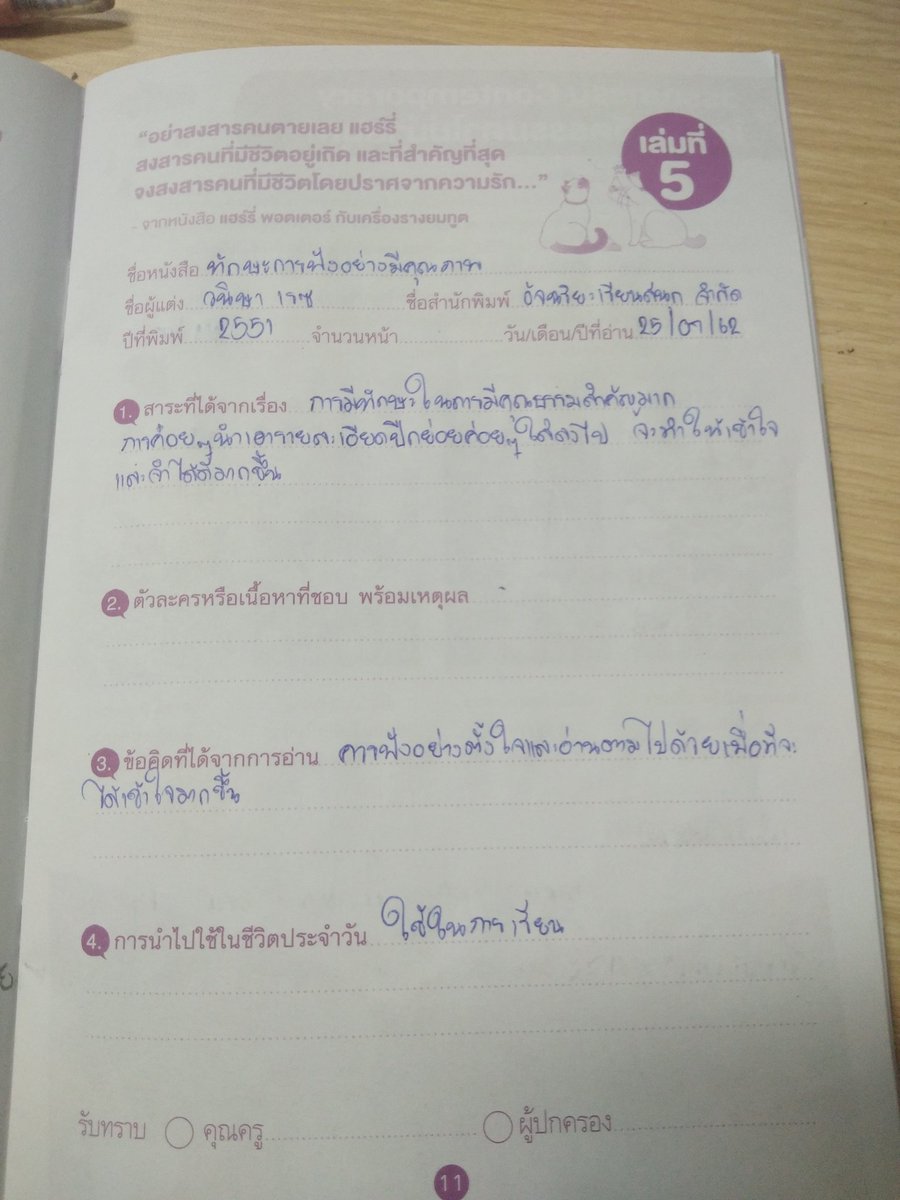 “อย่าสงสารคนตายเลย แฮร์รี่
สงสารคนที่มีชีวิตอยู่เถิด และที่สำคัญที่สุด
จงสงสารคนที่มีชีวิตโดยปราศจากความรัก...”
- จากหนังสือ แฮร์รี่ พอตเตอร์ กับเครื่องรางยมทูต
เล่มที่
5
ชื่อหนังสือ ทักษะการฟังอย่างมีคุณภาพ
ชื่อผู้แต่ง วนิษา เรซ ชื่อสำนักพิมพ์ อัจฉริยะเรียนสนุก จำกัด
ปีที่พิมพ์ 2551 จำนวนหน้า วัน/เดือน/ปีที่อ่าน 25/07/62
1. สาระที่ได้จากเรื่อง การมีทักษะในการมีคุณธรรมสำคัญมาก
การค่อยๆนำเอารายละเอียดปีกย่อยค่อยๆใส่ลงไป จะทำให้เข้าใจ
และจำได้ดีมากขึ้น
2. ตัวละครหรือเนื้อหาที่ชอบ พร้อมเหตุผล
3. ข้อคิดที่ได้จากการอ่าน การฟังอย่างตั้งใจและอ่านตามไปด้วยเพื่อที่จะ
ได้เข้าใจมากขึ้น
4. การนำไปใช้ในชีวิตประจำวัน ใช้ในการเรียน
รับทราบ คุณครู ผู้ปกครอง
11